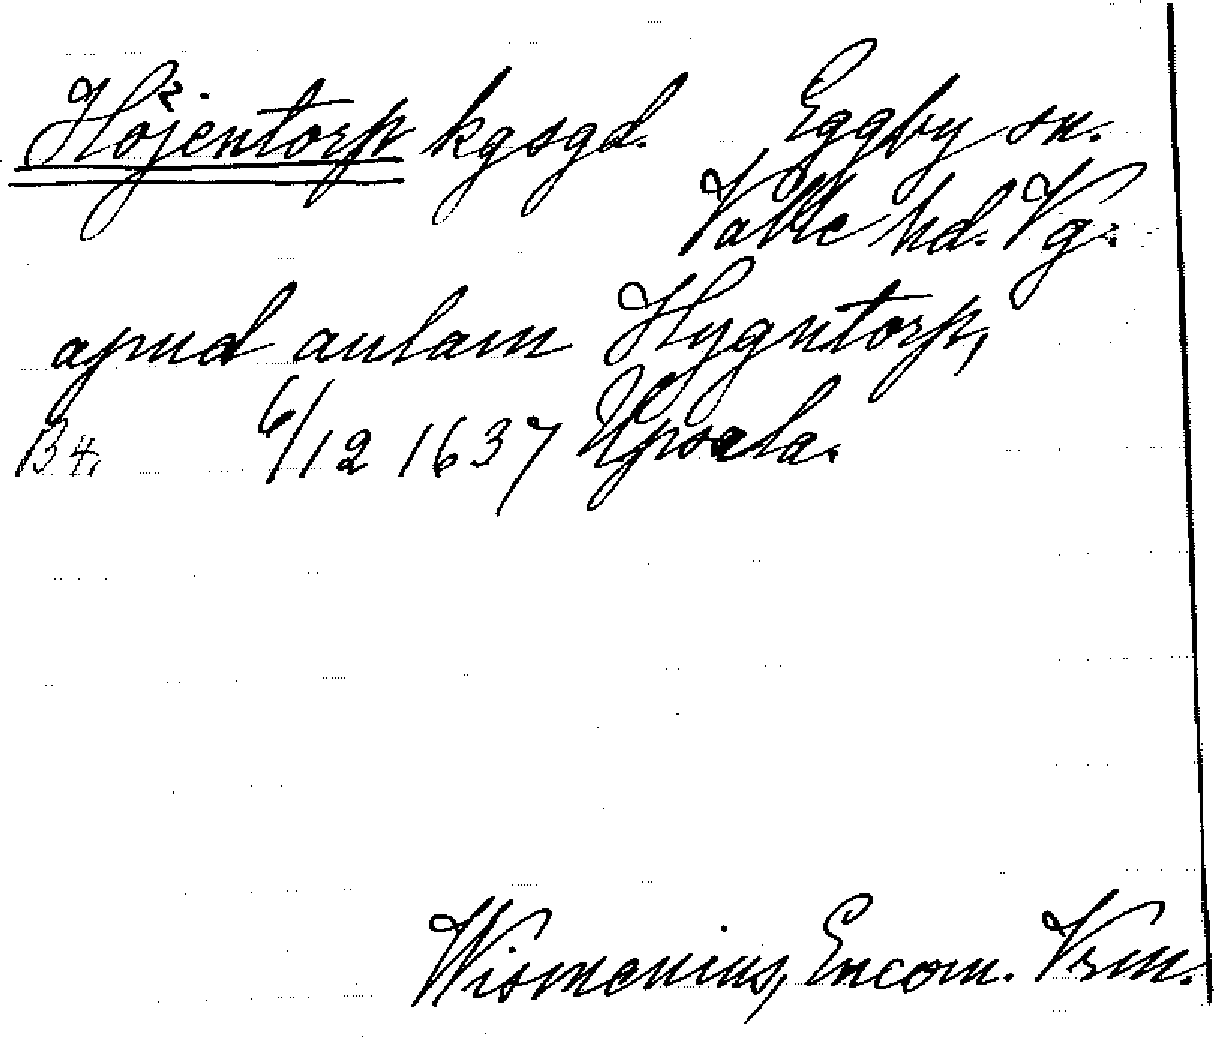 Höjentorp kgsgd. Eggby sn.
Valle hd. Vg.
apud aulam Hygntorp,
B 4, 6/12 1637 Upsala.
Wismenius, Encom. Vrm.